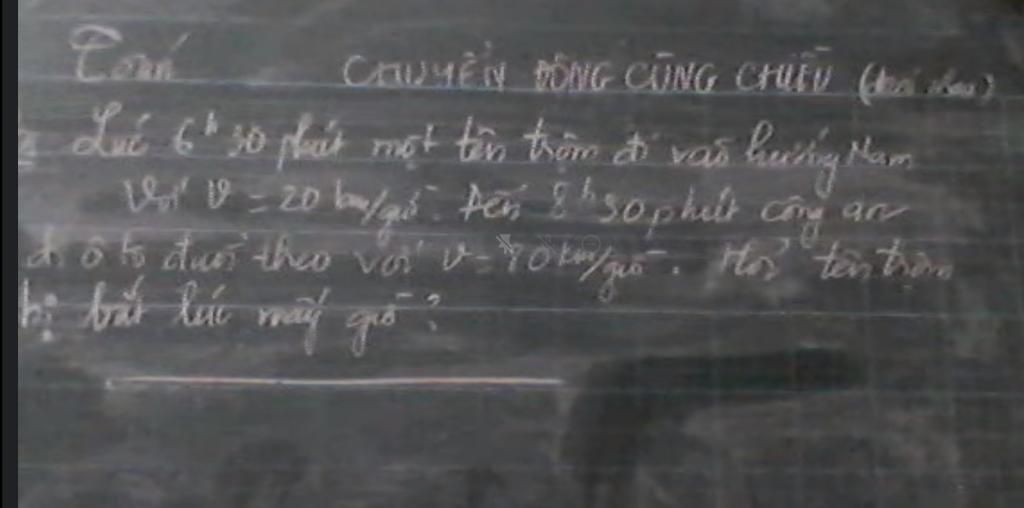 Toán CHUYỂN ĐỘNG CÙNG CHIỀU (đuổi nhau)
Lúc 6h 30 phút một tên trộm đi vào hướng Nam
Với v = 20 km/giờ. Đến 8h 30 phút công an
đi ô tô đuổi theo với v = 70 km/giờ. Hỏi tên trộm
bị bắt lúc mấy giờ?